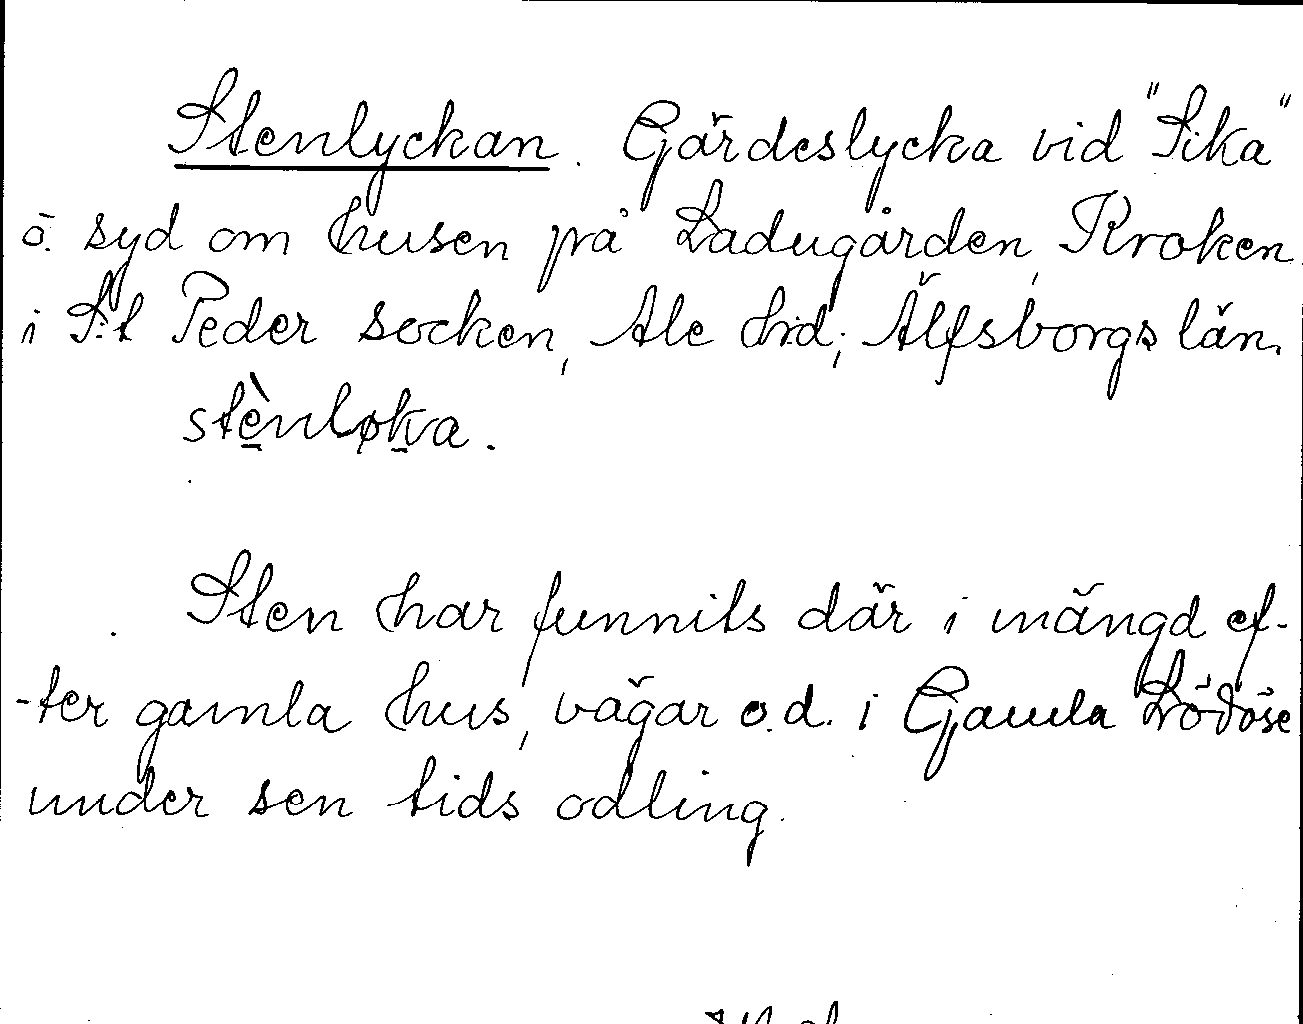 Stenlyckan. Gärdeslycka vid "Sika"
ö. syd om husen på Ladugården, Kroken
i S:t Peder socken, Ale hd; Älfsborgs län.
stènløka.
Sten har funnits där i mängd ef-
-ter gamla hus, vägar o.d. i Gamla Lödöse
under sen tids odling.